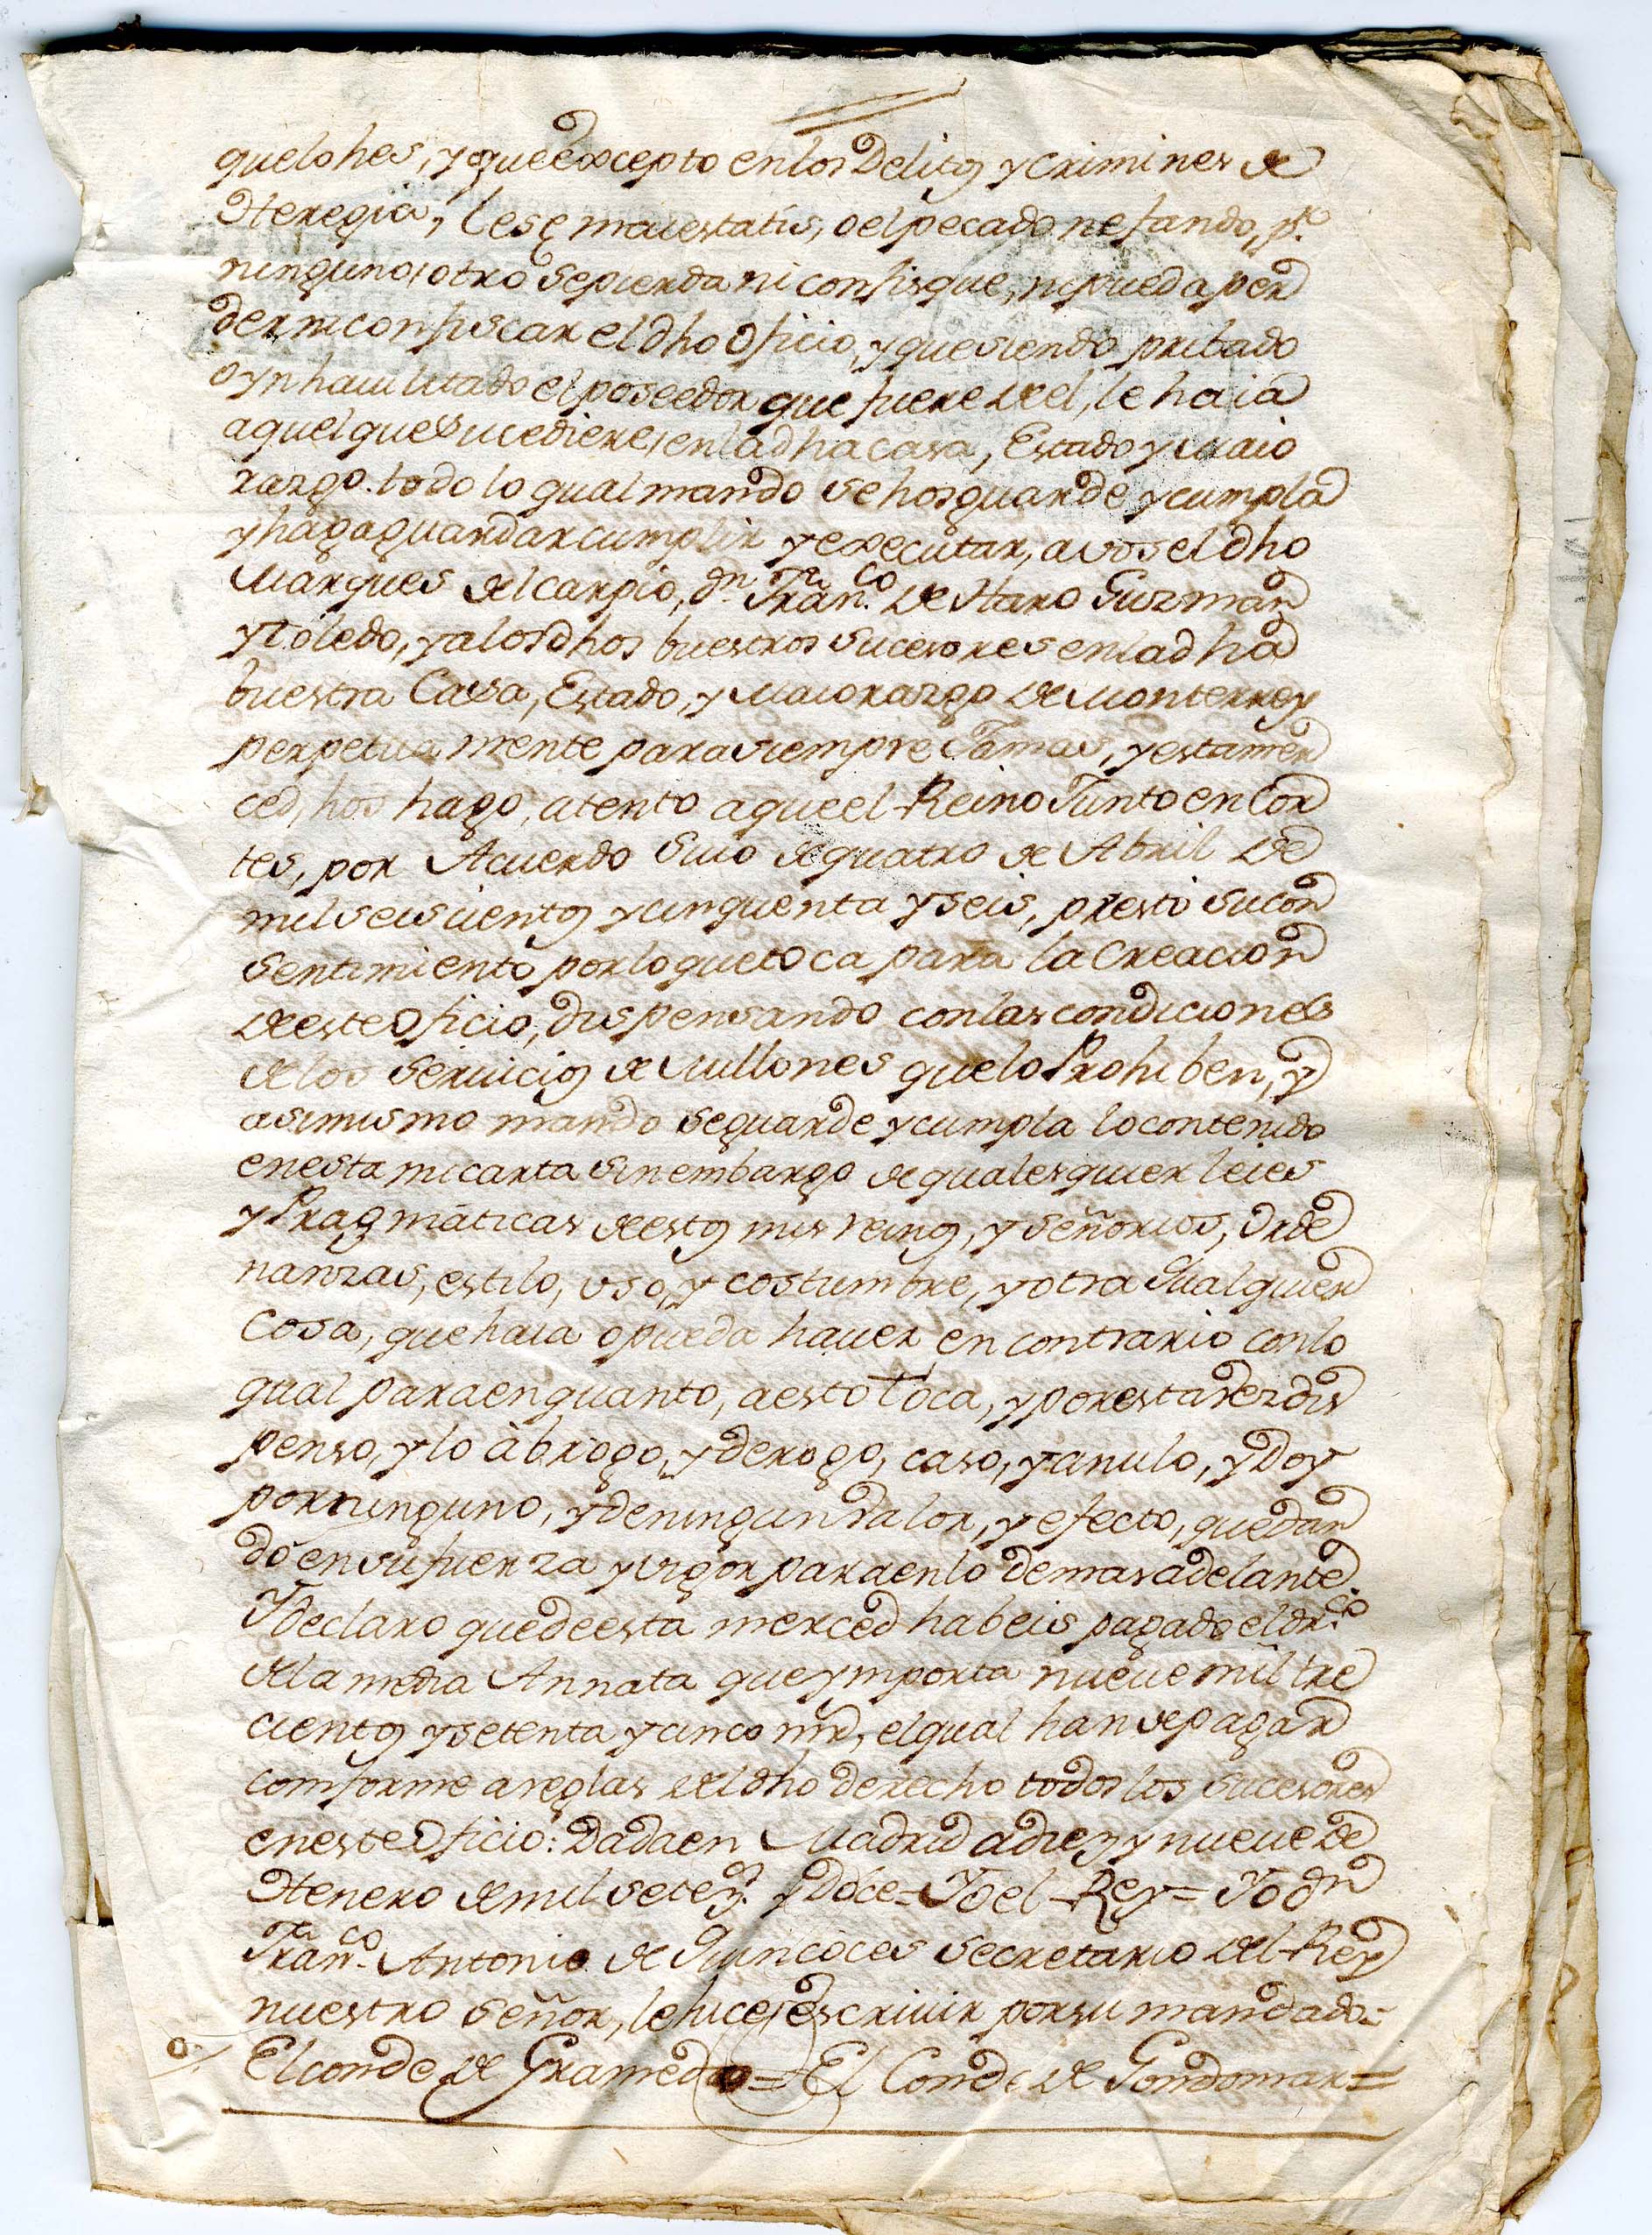 quelo hes, y que excepto enlos Delitos y crimines de
Heregia, Lese maiestatis, o el pecado nefando, pr.
ninguno otro se pierda ni confisque, ni pueda per
der ni confiscar el dho oficio, y que siendo pribado
o ynhauilitado el poseedor que fuere de el, le haia
aquel que sucediere en la dha casa, Estado y maio
razgo. todo lo qual mando se hos guarde y cumpla
y haga guardar cumplir y executar, a vos el dho
Marques del carpio, dn. Franco. de Haro Guzman
y Toledo, y a los dhos buestros sucesores en la dha
buestra Casa, Estado, y Maiorazgo de Monterrey
perpetua mente para siempre Jamas, y esta mer
ced, hos hago, atento a que el Reino Junto en Cor
tes, por Acuerdo Suio de quatro de Abril de
mil seiscientos y cinquenta y seis, presto su con
sentimiento por lo que toca para la Creacion
de este Oficio, dispensando con las condiciones
de los seruicios de Millones que lo Prohiben, y
asimismo mando se guarde y cumpla lo contenido
en esta mi carta sin embargo de qualesquier leies
y Pragmáticas de estos mis reinos, y señorios, Orde
nanzas, estilo, uso, y costumbre, y otra qualquier
Cosa, que haia o pueda hauer en contrario con lo
qual para en quanto, a esto toca, y por esta vez dis
penso, y lo àbrogo, y derogo, caso, y anulo, y doy
por ninguno, y de ningun valor, y efecto, quedan
do en su fuerza y vigor para en lo demas adelante.
Y declaro que de esta merced habeis pagado el dr.cho
de la media Annata que ymporta nueue mil tre
cientos y setenta y cinco mrs, el qual han de pagar
comforme a reglas del dho derecho todos los sucesores
en este Oficio: Dada en Madrid a diez y nueue de
Henero de mil setezs. y Doce = Yo el Rey = Yo dn
Franco. Antonio de Quincoces secretario del Rey
nuestro Señor, le hice escriuir por su mandado =
El conde de Gramedo = El Conde de Gondomar =